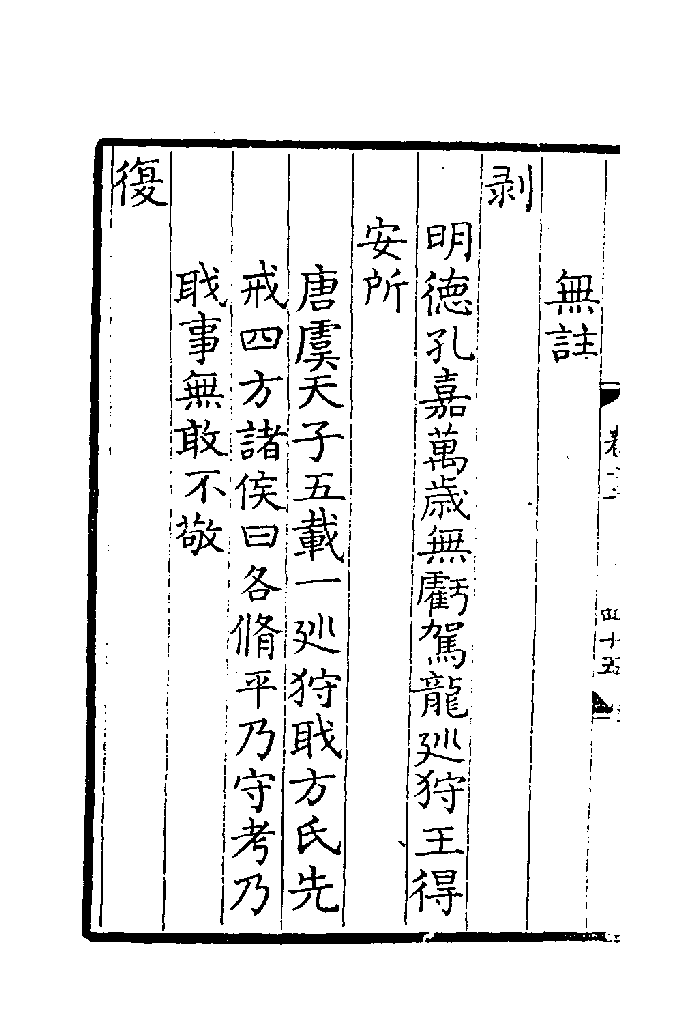 無註
剥
明徳孔嘉萬歳無虧駕龍廵狩王得
安所
唐虞天子五載一廵狩戢方氏先
戒四方諸侯曰各脩平乃守考乃
戢事無敢不敬
復
四十五